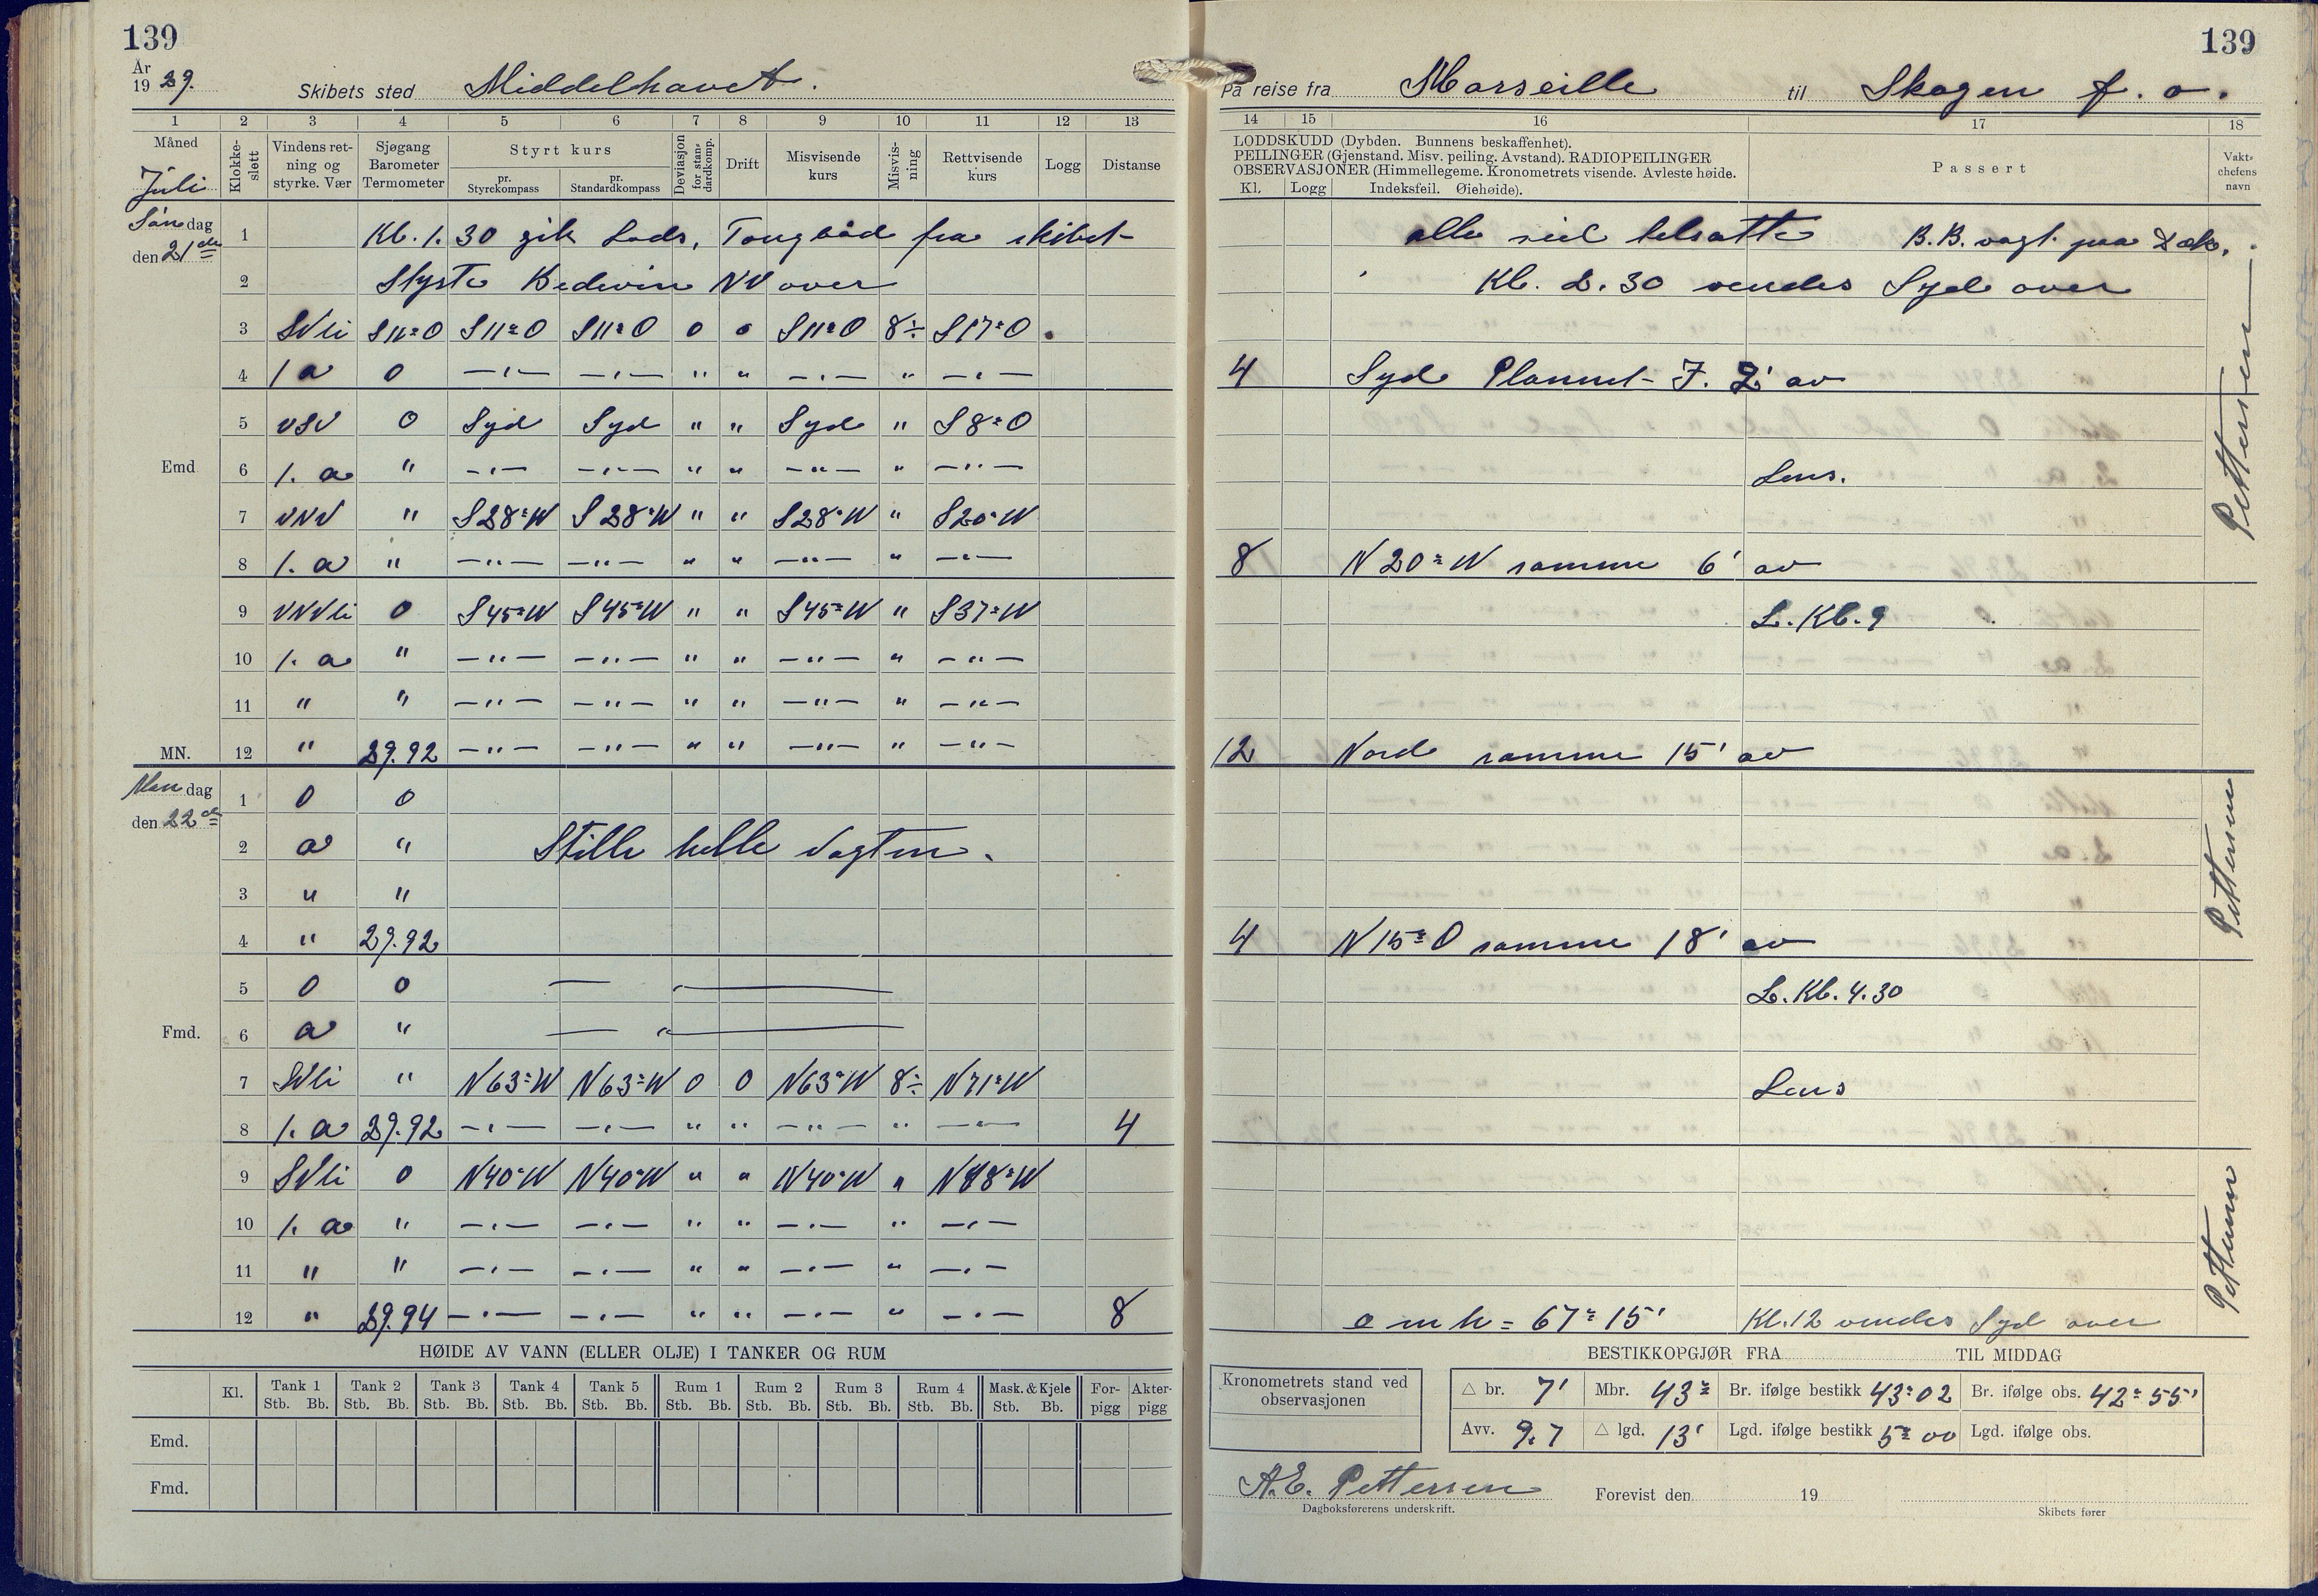 139
139
År
1929.
Skibets sted Middelhavet.
På reise fra Marseille til Skagen f. o.
1 2 3 4 5 6 7 8 9 10 11 12 13
14 15 16 17 18
Måned
Juli
Klokke-slett
Vindens ret-ning og styrke. Vær
Sjøgang Barometer Termometer
Styrt kurs
pr. Styrekompass
pr. Standardkompass
Deviasjon for stan-dardkomp.
Drift
Misvisende kurs
Misvis-ning
Rettvisende kurs
Logg
Distanse
LODDSKUDD (Dybden. Bunnens beskaffenhet).
PEILINGER (Gjenstand. Misv. peiling. Avstand). RADIOPEILINGER
OBSERVASJONER (Himmellegeme. Kronometrets visende. Avleste høide.
Kl. Logg Indeksfeil. Øiehøide).
Passert
Vakt-chefens navn
Søndag
den 21de
1 Kl. 1.30 gik Lods, Taugbåd fra skibet
alle seil tilsatte B.B. vagt paa Dæk.
2 Styrte Bedevin NV over
Kl. 2.30 vendes Syd over
3 SVli S11°O S11°O S11°O 0 0 S11°O 8÷ S17°O
4 1 a 0 —"— —"— " " —"— " —"—
4 Syd Plannet F. 2' av
5 VSV 0 Syd Syd " " Syd " S8°O
Emd
6 1. a " —"— —"— " " —"— " —"—
Lens.
7 VNV " S28°W S28°W " " S28°W " S20°W
8 1. a " —"— —"— " " —"— " —"—
8 N20°W samme 6' av
9 VNVli 0 S45°W S45°W " " S45°W " S37°W
L. Kl. 9
10 1. a " —"— —"— " " —"— " —"—
11 " " —"— —"— " " —"— " —"—
MN.
12 " 29.92 —"— —"— " " —"— " —"—
12 Nord samme 15' av
Pettersen
Mandag
den 22de
1 0 0
2 a " Stille helle Vagten.
3 " "
4 " 29.92
4 N15°O samme 18' av
Pettersen
5 0 0 — " —
L. Kl. 4.30
Fmd.
6 a " — " —
7 SVli " N63°W N63°W 0 0 N63°W 8÷ N71°W
Lens
8 1. a 29.92 —"— —"— " " —"— " —"— 4
9 SVli 0 N40°W N40°W " " N40°W " N48°W
10 1. a " —"— —"— " " —"— " —"—
11 " " —"— —"— " " —"— " —"—
12 " 29.94 —"— —"— " " —"— " —"— 8
o m h = 67° 15' Kl. 12 vendes Syd over
Pettersen
HØIDE AV VANN (ELLER OLJE) I TANKER OG RUM
Kl. Tank 1 Tank 2 Tank 3 Tank 4 Tank 5 Rum 1 Rum 2 Rum 3 Rum 4 Mask. & Kjele For-pigg Akter-pigg
Stb. Bb. Stb. Bb. Stb. Bb. Stb. Bb. Stb. Bb. Stb. Bb. Stb. Bb. Stb. Bb. Stb. Bb. Stb. Bb.
Emd.
Fmd.
BESTIKKOPGJØR FRA TIL MIDDAG
Kronometrets stand ved observasjonen
△ br. 7' Mbr. 43° Br. ifølge bestikk 43°02 Br. ifølge obs. 42°55'
Avv. 9.7 △ lgd. 13' Lgd. ifølge bestikk 5°00 Lgd. ifølge obs.
A.E. Pettersen
Dagboksførerens underskrift.
Forevist den 19
Skibets fører